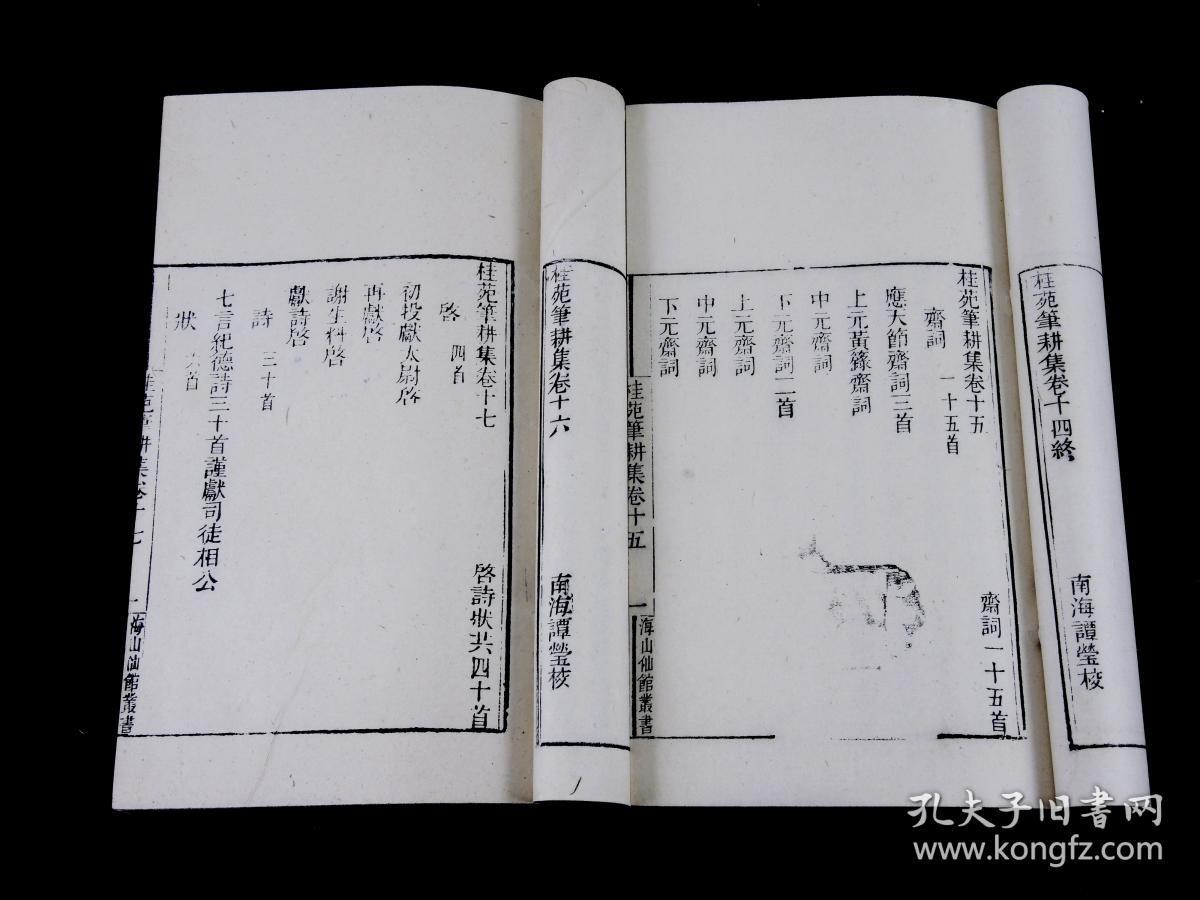 桂苑筆耕集卷十四終
南海譚瑩校
桂苑筆耕集卷十五
齋詞一十五首
齋詞 一十五首
應天節齋詞三首
上元黃籙齋詞
中元齋詞
下元齋詞二首
上元齋詞
中元齋詞
下元齋詞
桂苑筆耕集卷十五
一
海山仙館叢書
桂苑筆耕集卷十六
南海譚瑩校
桂苑筆耕集卷十七
啓詩狀共四十首
啓 四首
初投獻太尉啓
再獻啓
謝生料啓
獻詩啓
詩 三十首
七言紀德詩三十首謹獻司徒相公
狀 六首
桂苑筆耕集卷十七
一
海山仙館叢書
孔夫子旧书网
www.kongfz.com